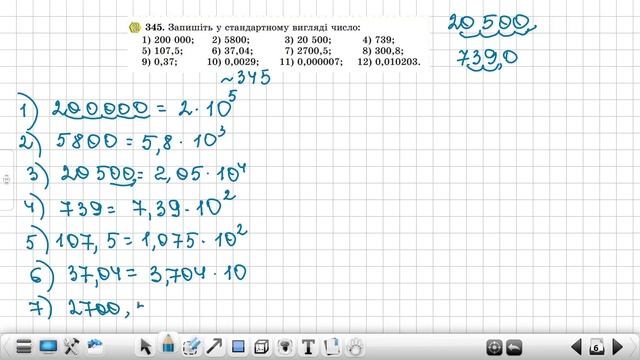 345. Запишіть у стандартному вигляді число:
1) 200 000; 2) 5800; 3) 20 500; 4) 739;
5) 107,5; 6) 37,04; 7) 2700,5; 8) 300,8;
9) 0,37; 10) 0,0029; 11) 0,000007; 12) 0,010203.
20 500,
739,0
~345
1) 200000 = 2 · 10⁵
2) 5800 = 5,8 · 10³
3) 20 500 = 2,05 · 10⁴
4) 739 = 7,39 · 10²
5) 107,5 = 1,075 · 10²
6) 37,04 = 3,704 · 10
7) 2700,
6